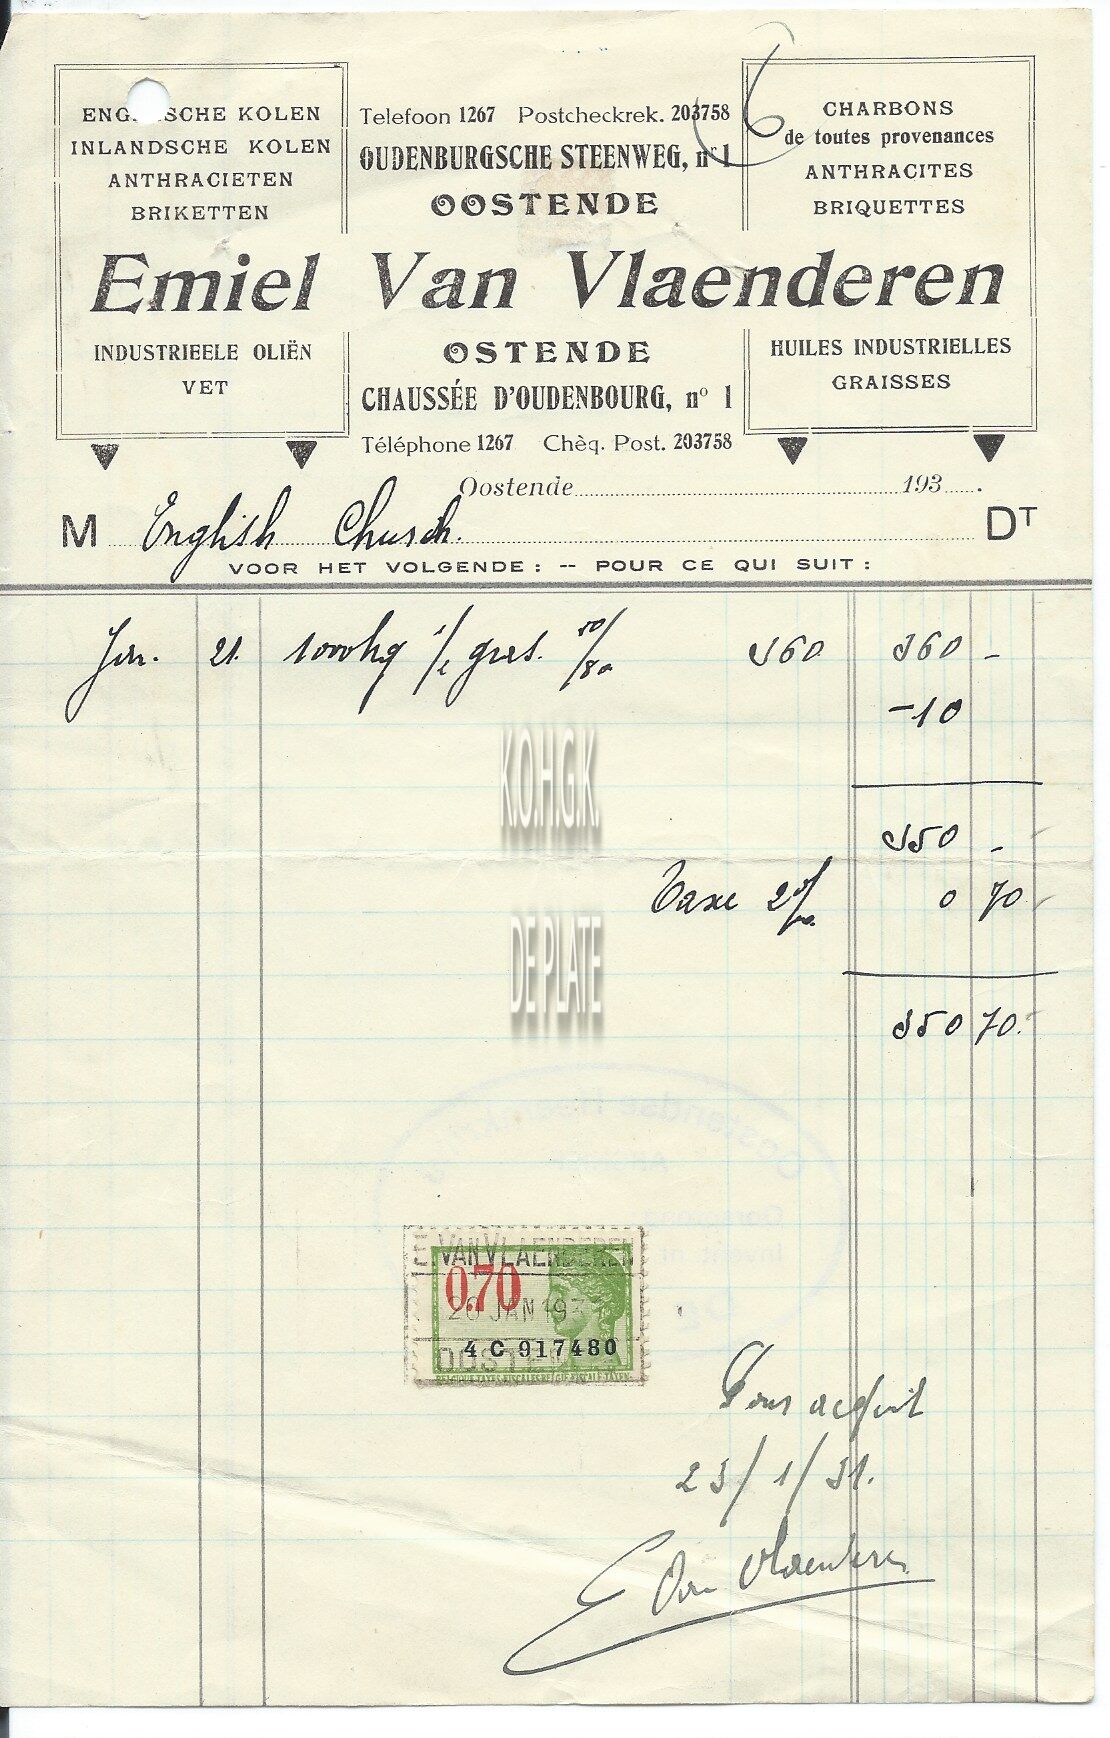 ENG SCHE KOLEN
INLANDSCHE KOLEN
ANTHRACIETEN
BRIKETTEN
Telefoon 1267 Postcheckrek. 203758
OUDENBURGSCHE STEENWEG, nr 1
OOSTENDE
6
CHARBONS
de toutes provenances
ANTHRACITES
BRIQUETTES
Emiel Van Vlaenderen
INDUSTRIEELE OLIËN
VET
OSTENDE
CHAUSSÉE D'OUDENBOURG, nº 1
Téléphone 1267 Chèq. Post. 203758
HUILES INDUSTRIELLES
GRAISSES
Oostende 193 .
M English Church. DT
VOOR HET VOLGENDE : -- POUR CE QUI SUIT :
Jan. 21. 1000kg 1/2 gras. 50/80 360 360 -
-10
350 -
Taxe 2 0/00 0 70
350 70.
K.O.H.G.K.
DE PLATE
E. VAN VLAENDEREN
0.70
20 JAN 193
4 C 917480
Pour acquit
23/1/31.
E Van Vlaenderen